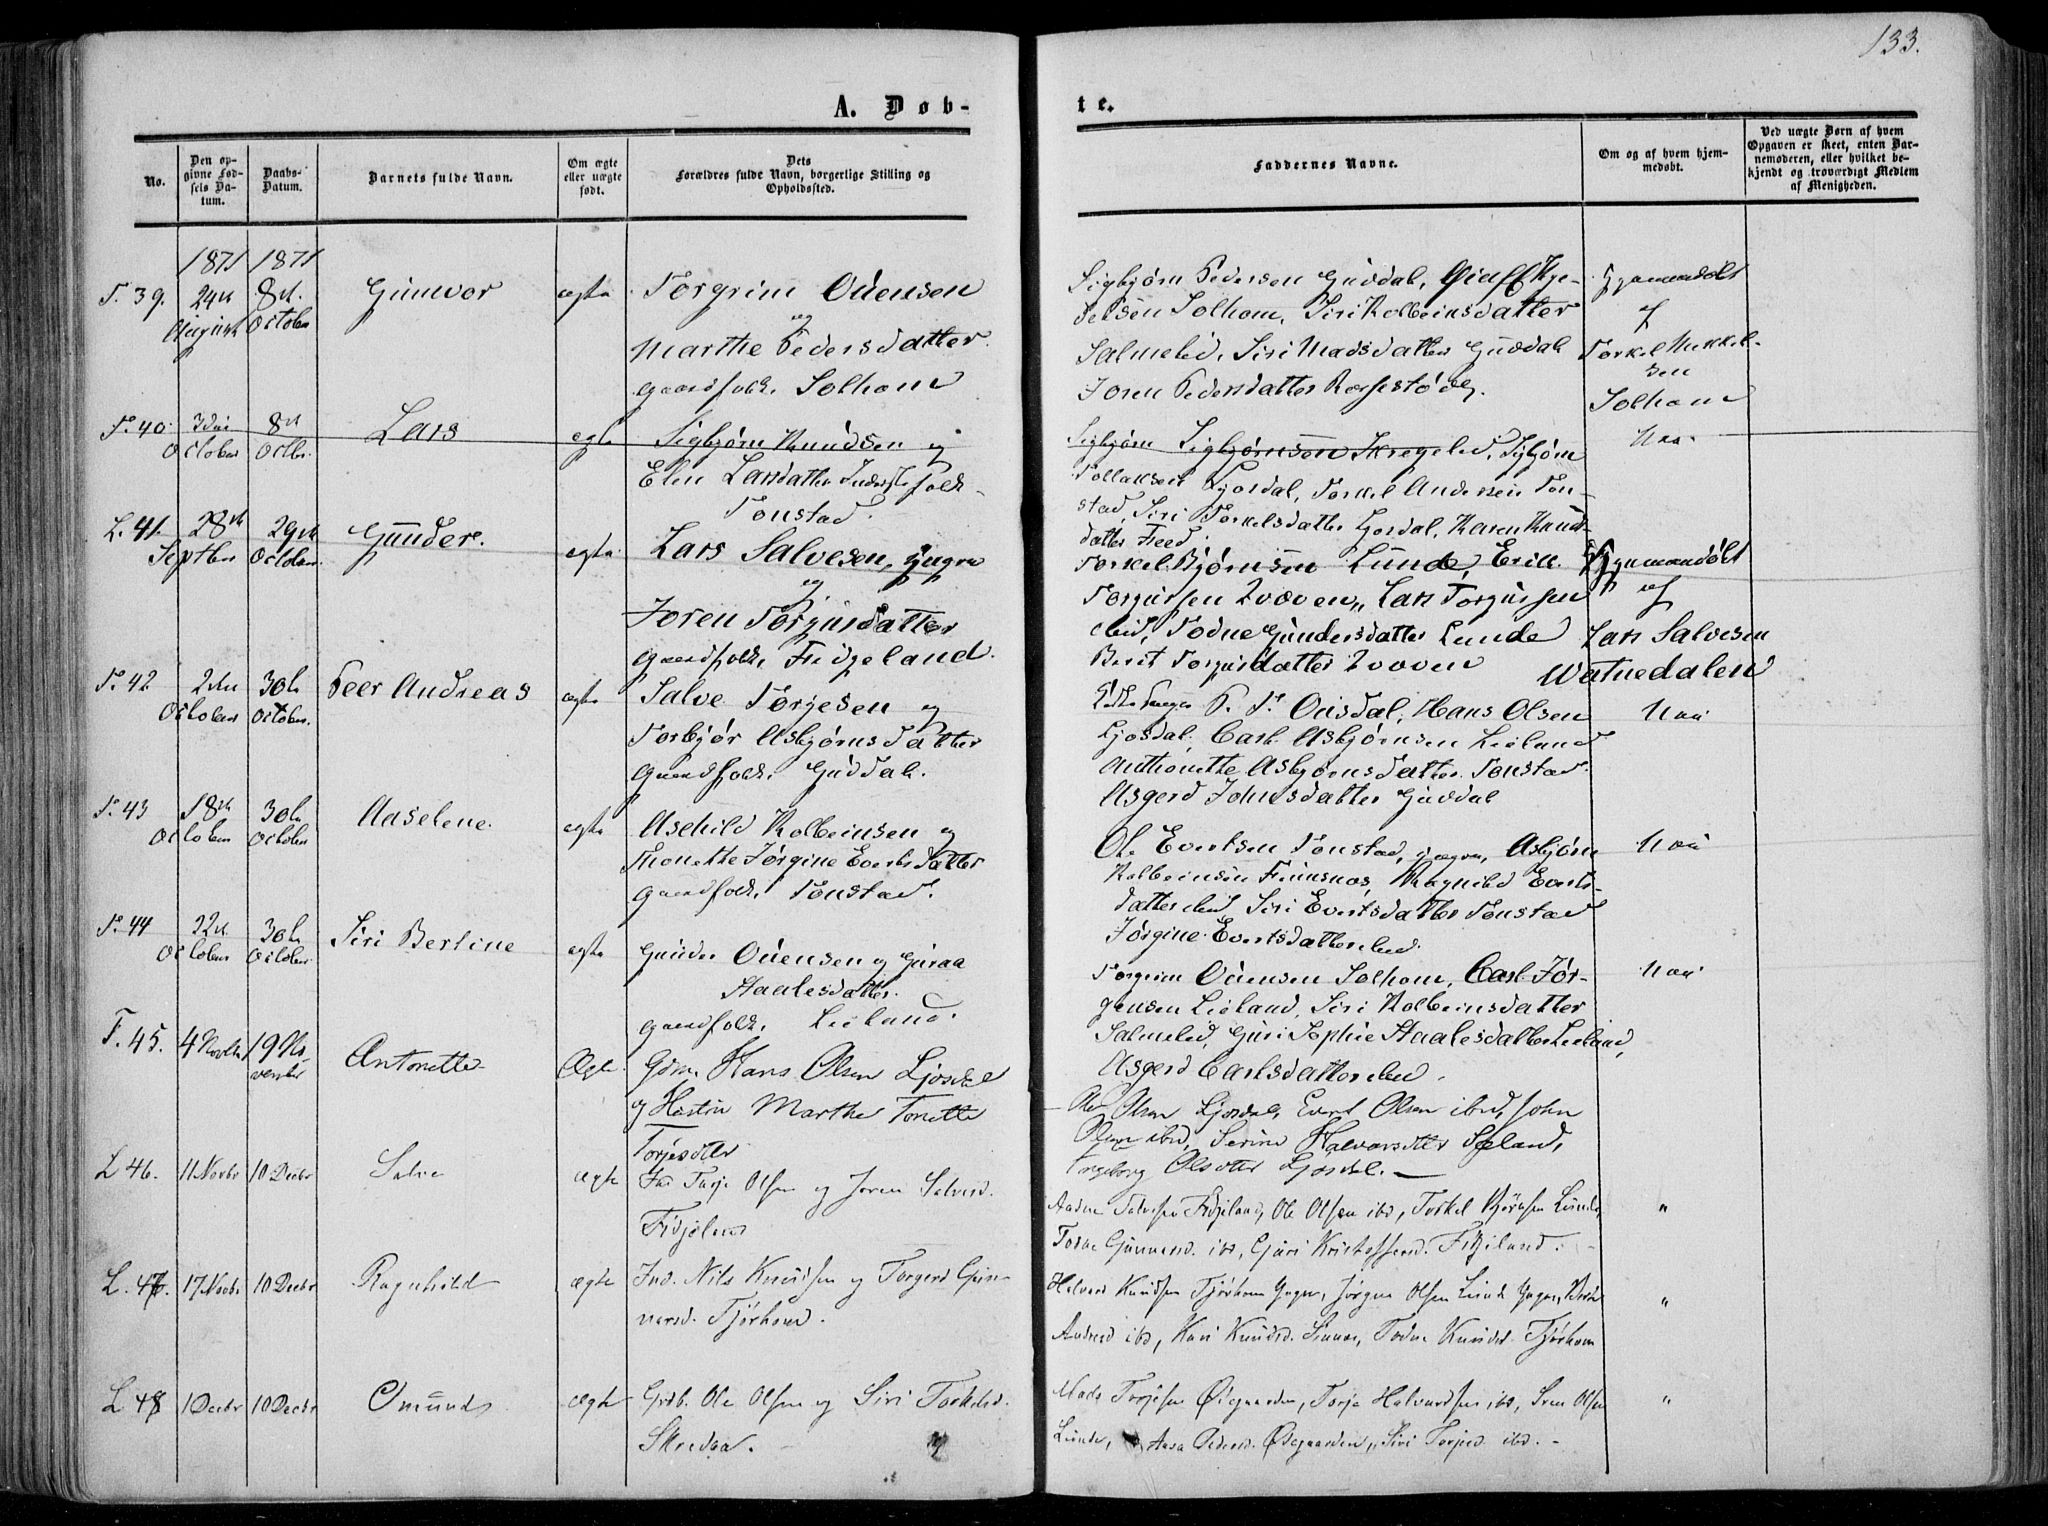 133.
A. Døb-
te.
No.
Den op-
givne Fød-
sels Da-
tum.
Daabs-
Datum.
Barnets fulde Navn.
Om ægte
eller uægte
født.
Dets
Forældres fulde Navn, borgerlige Stilling og
Opholdssted.
Faddernes Navne.
Om og af hvem hjem-
medøbt.
Ved uægte Børn af hvem
Opgaven er skeet, enten Bar-
nemoderen, eller hvilket be-
kjendt og troværdigt Medlem
af Menigheden.
1871 1871
T. 39. 24de August 8de October Gunvor ægte Torgrim Ouensen
og
Marthe Pedersdatter
gaardfolk. Solhom
Sigbjørn Pedersen Guddal,
Solhom, Siri Kolbeinsdatter
Salmelid, Siri Madsdatter Guddal
Joren Pedersdatter
Hjemmedøbt
af
Torkel Mikkel-
sen
Solhom
T. 40. 3die October 8de Octbr. Lars ægte Sigbjørn Knudsen og
Elen Larsdatter Inderstefolk
Tonstad.
Sigbjørn Sigbjørnsen Skregelid, Sigbjørn
Tollaksen Josdal, Torkel Andersen Ton-
stad, Siri Torkelsdatter Josdal, Karen Knuds-
datter Freed.
Naa
L. 41. 28de Septbr 29de October. Gunder. ægte Lars Salvesen, yngre
og
Joren Torgusdatter
gaardfolk, Fidjeland.
Torkel Bjørnsen Lunde, Erik
Torgussen Qvæven, Lars Torgussen
ibid, Todne Gundersdatter Lunde
Berit Torgusdatter Qvæven
Hjemmedøbt
af
Lars Salvesen
Watnedalen
T. 42 2den October 30te October. Peer Andreas ægte Salve Tørjesen og
Torbjør Asbjørnsdatter
gaardfolk. Guddal.
P. T. Ousdal, Hans Olsen
Ljosdal, Carl Asbjørnsen Lieland
Anthonette Asbjørnsdatter Tonstad.
Asgerd Johnsdatter Guddal
Naa
T. 43 18de October 30te October Aaselene. ægte Asekild Kolbeinsen og
Thonette Jørgine Evertsdatter
gaardfolk. Tonstad.
Ole Evertsen Tonstad, yngre, Asbjørn
Kolbeinsen Finnsnes, Ragnild Everts-
datter ibid Siri Evertsdatter Tonstad
Jørgine Evertsdatter ibid.
Naa
T. 44 22de October 30te October. Siri Bertine ægte Gunder Ouensen og Guraa
Staalesdatter.
gaardfolk. Lieland.
Torgrim Ouensen Solhom, Carl Jør-
gensen Lieland, Siri Kolbeinsdatter
Salmelid, Guri Sophie Staalesdatter Lieland,
Asgerd Carlsdatter ibid.
Naa
F. 45. 4 Novbr 19 No-
vember Antonette Ægte Gdm. Hans Olsen Ljosdal
og Hustru Marthe Tonette
Torjesdttr
Ole Olsen Ljosdal, Evert Olsen ibid, John
Olsen ibid, Serine Halvorsdttr Seland,
Ingeborg Olsdttr Ljosdal.
L 46. 11 Novbr 10 Decbr Salve Ægte Ind. Torje Olsen og Joren Salvesd.
Fidjeland
Aadne Salvesen Fidjeland, Ole Olsen ibd, Torkel Bjørnsen Lunde,
Todne Gunnarsd. ibd, Guri Kristoffersd. Fidjeland.
"
L. 47. 17 Novbr 10 Decbr Ragnhild ægte Ind. Nils Knudsen og Torgerd Gun-
narsd. Tjørhom.
Halvard Knudsen Tjørhom Yngre, Jørgen Olsen Lunde Yngre,
Andersd ibd, Kari Knudsd. Sinnes, Todne Knudsd. Tjørhom
"
L 48 1 Decbr 10 Decbr Omund ægte Grdb. Ole Olsen og Siri Torkelsd.
Skredaa.
Mads Torjesen Ødegaarden, Torje Halvardsen ibd, Sven Olsen
Lunde, Aasa Pedersd. Ødegaarden, Siri Torjesd. ibd.
"